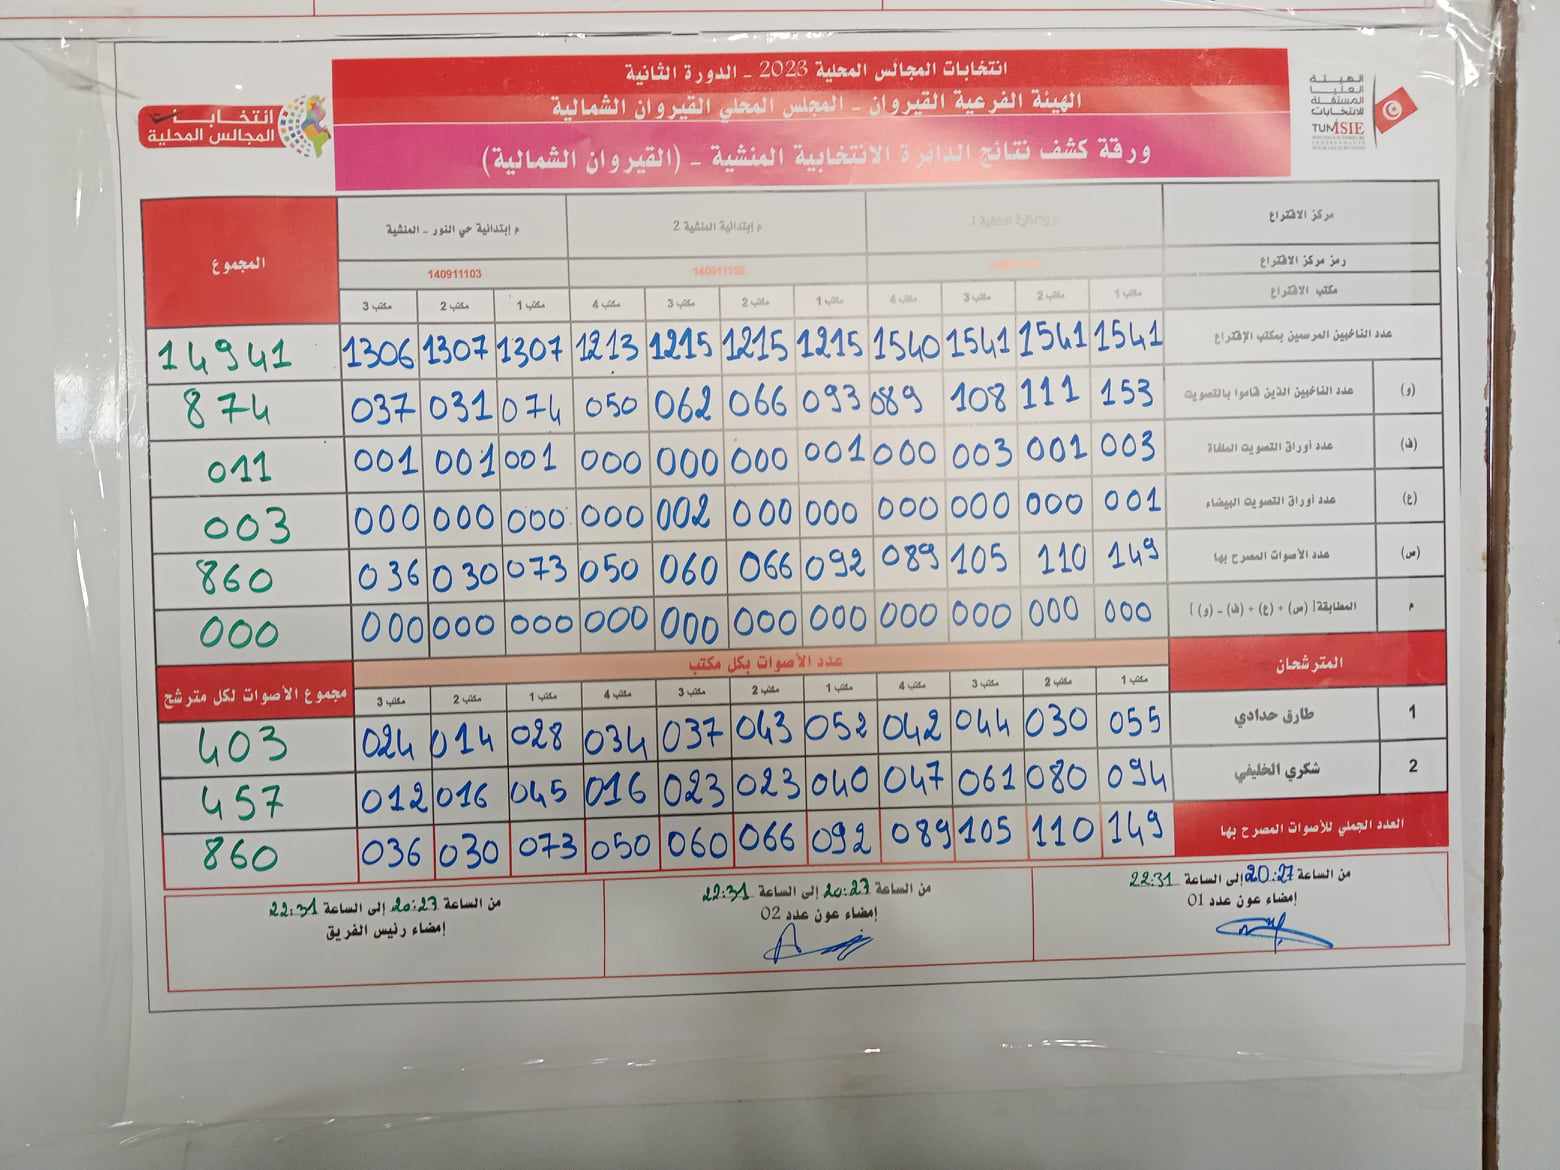 انتخابات المجالس المحلية 2023 - الدورة الثانية
الهيئة الفرعية القيروان - المجلس المحلي القيروان الشمالية
ورقة كشف نتائج الدائرة الانتخابية المنشية - (القيروان الشمالية)
الهيئة
العليا
المستقلة
للانتخابات
TUNISIE
انتخابات
المجالس المحلية
مركز الاقتراع م إبتدائية المنشية 2 م إبتدائية حي النور - المنشية المجموع
رمز مركز الاقتراع 140911103
مكتب الاقتراع مكتب 1 مكتب 2 مكتب 3 مكتب 4 مكتب 1 مكتب 2 مكتب 3 مكتب 4 مكتب 1 مكتب 2 مكتب 3
عدد الناخبين المرسمين بمكتب الإقتراع 1541 1541 1541 1540 1215 1215 1215 1213 1307 1307 1306 14941
(و) عدد الناخبين الذين قاموا بالتصويت 153 111 108 089 093 066 062 050 074 031 037 874
(ف) عدد أوراق التصويت الملغاة 003 001 003 000 001 000 000 000 001 001 001 011
(ع) عدد أوراق التصويت البيضاء 001 000 000 000 000 000 002 000 000 000 000 003
(س) عدد الأصوات المصرح بها 149 110 105 089 092 066 060 050 073 030 036 860
م المطابقة[ (س) + (ع) + (ف) - (و) ] 000 000 000 000 000 000 000 000 000 000 000 000
المترشحان عدد الأصوات بكل مكتب مجموع الأصوات لكل مترشح
مكتب 1 مكتب 2 مكتب 3 مكتب 4 مكتب 1 مكتب 2 مكتب 3 مكتب 4 مكتب 1 مكتب 2 مكتب 3
1 طارق حدادي 055 030 044 042 052 043 037 034 028 014 024 403
2 شكري الخليفي 094 080 061 047 040 023 023 016 045 016 012 457
العدد الجملي للأصوات المصرح بها 149 110 105 089 092 066 060 050 073 030 036 860
من الساعة 20:27 إلى الساعة 22:31
إمضاء عون عدد 01
من الساعة 20:27 إلى الساعة 22:31
إمضاء عون عدد 02
من الساعة 20:27 إلى الساعة 22:31
إمضاء رئيس الفريق